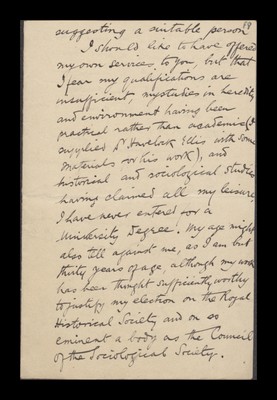 59
suggesting a suitable person
I should like to have offered
my own services to you, but that
I fear my qualifications are
insufficient, my studies in heredity
and environment having been
practical rather than academic (I
supplied Dr Havelock Ellis with some
materials for his work), and
historical and sociological studies
having claimed all my leisure
I have never entered for a
University Degree. My age might
also tell against me, as I am but
thirty years of age, although my work
has been thought sufficiently worthy
to justify my election on the Royal
Historical Society and on so
eminent a body as the Council
of the Sociological Society.